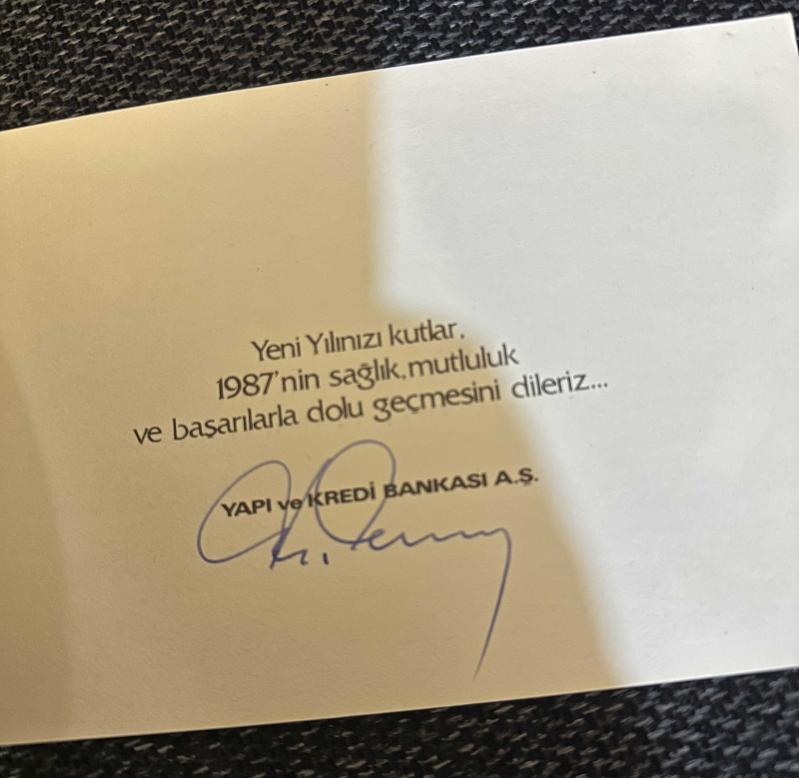 Yeni Yılınızı kutlar,
1987'nin sağlık, mutluluk
ve başarılarla dolu geçmesini dileriz...
YAPI ve KREDİ BANKASI A.Ş.